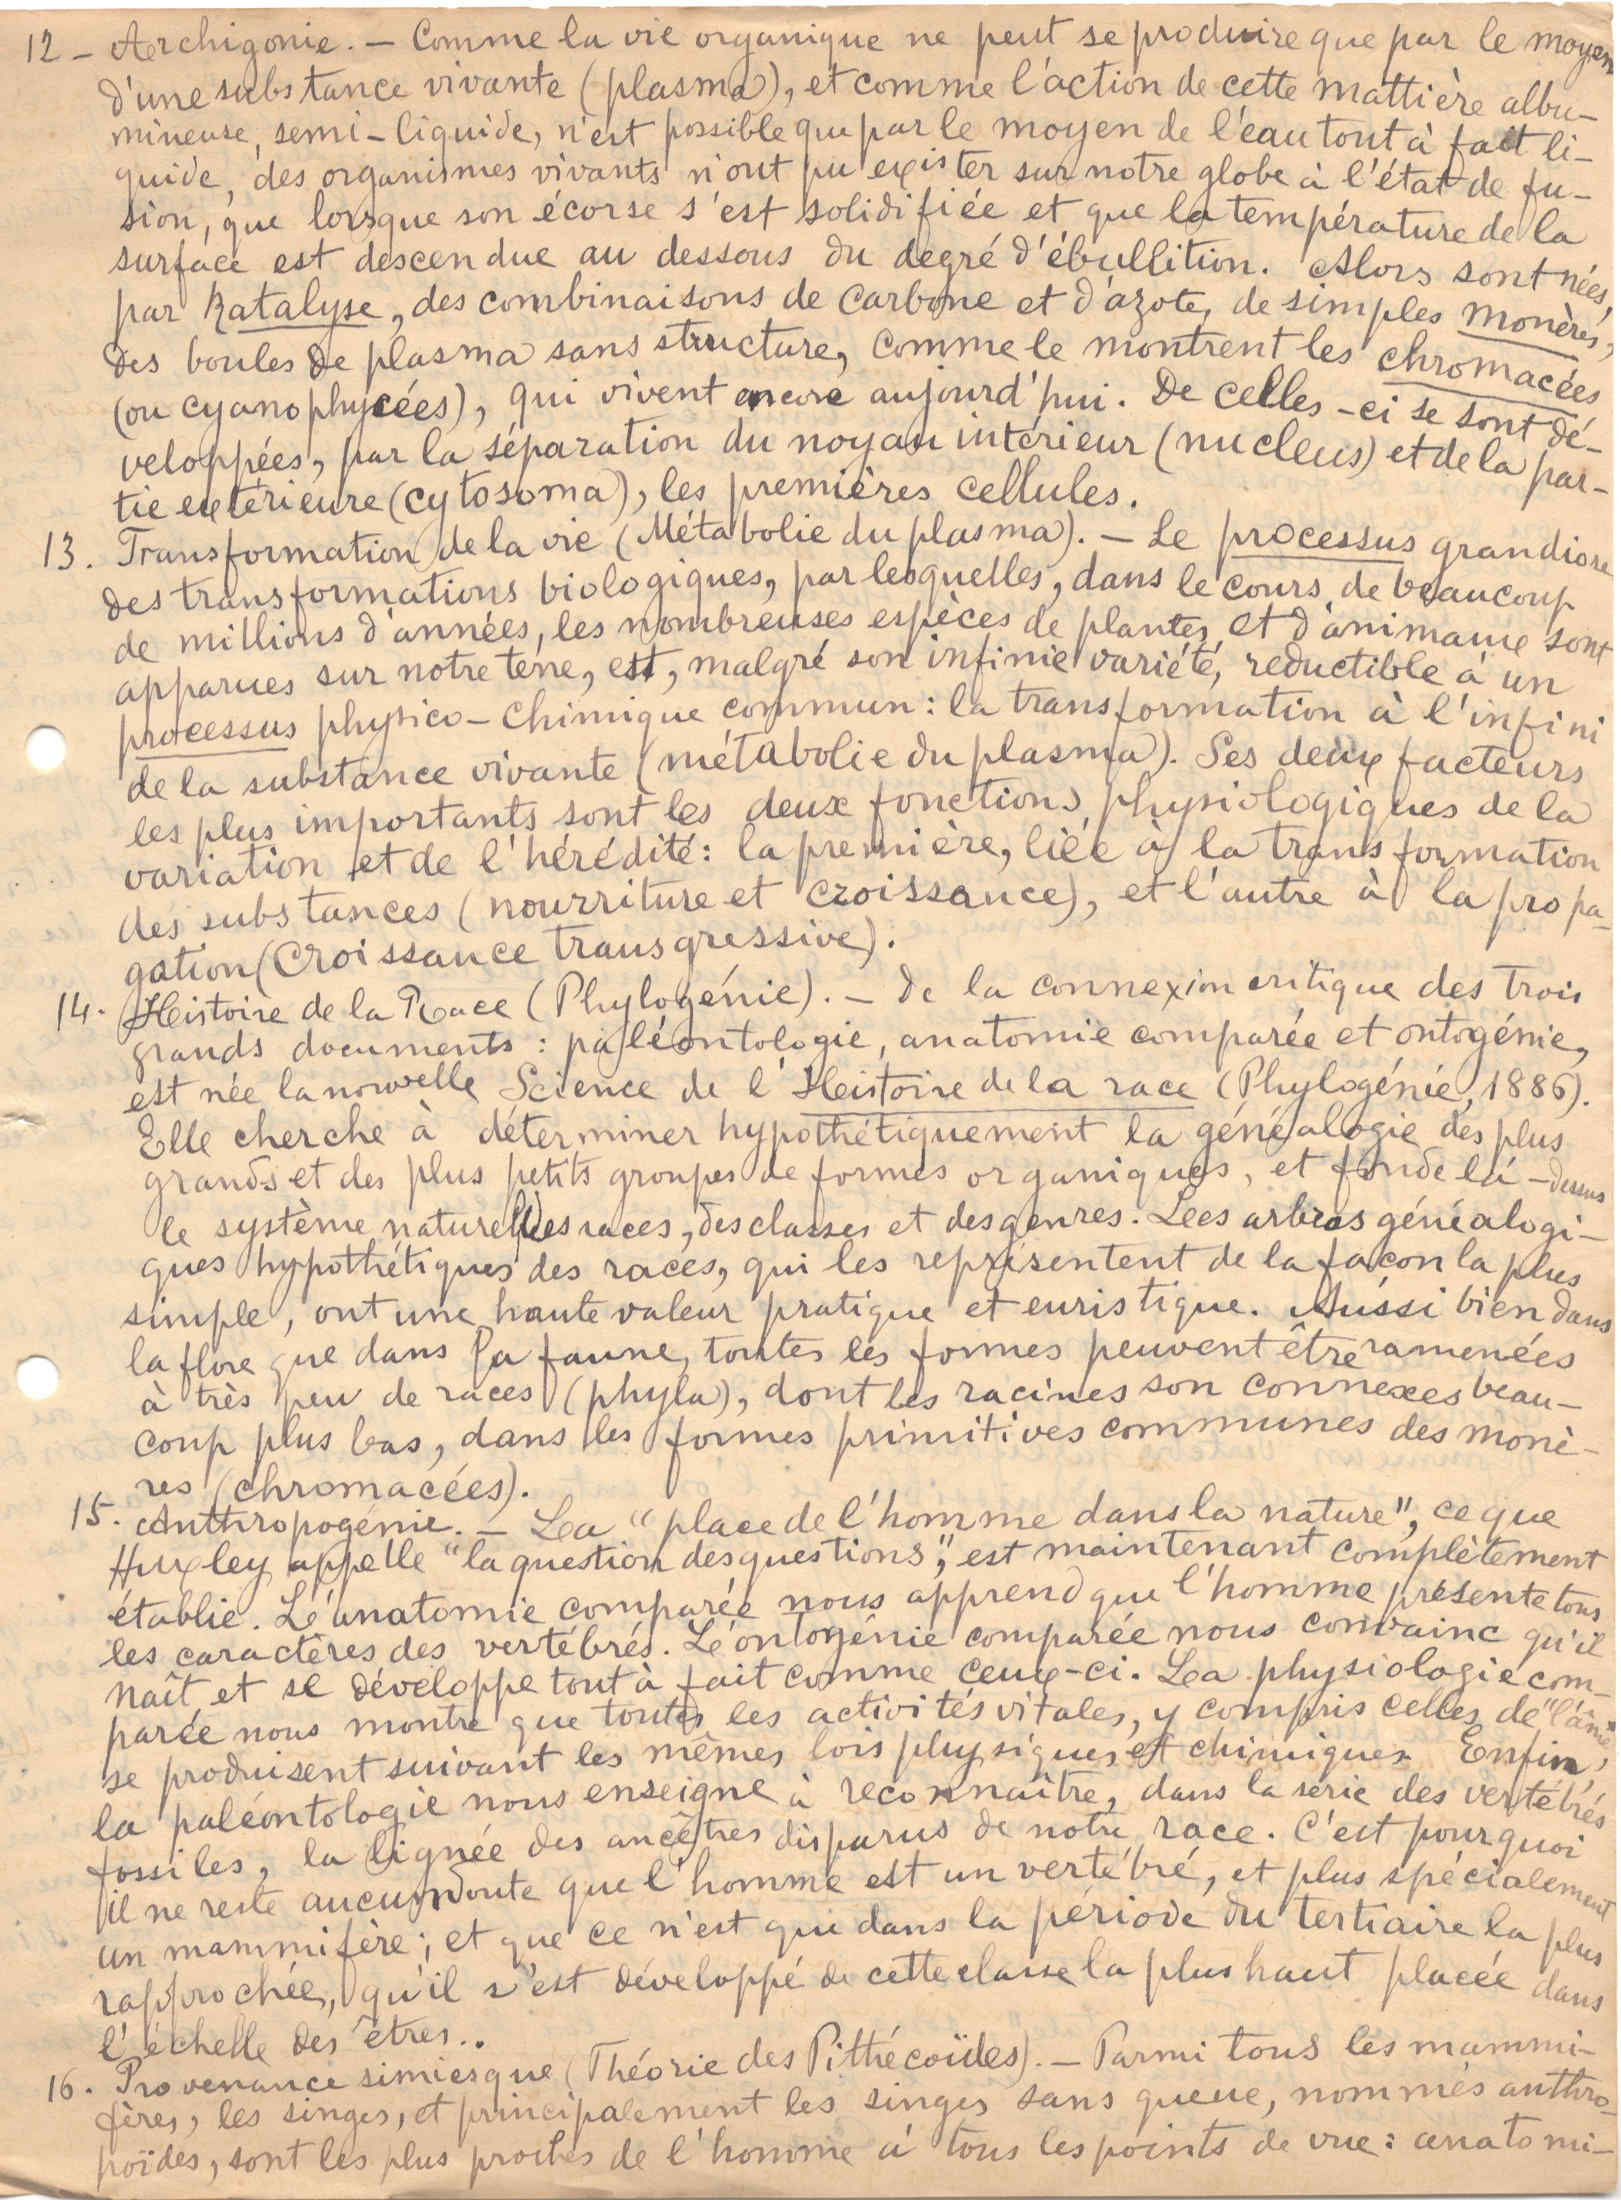 12 - Archigonie. — Comme la vie organique ne peut se produire que par le moyen
d'une substance vivante (plasma), et comme l'action de cette mattière albu-
mineuse, semi-liquide, n'est possible que par le moyen de l'eau tout à fait li-
quide, des organismes vivants n'ont pu exister sur notre globe à l'état de fu-
sion, que lorsque son écorse s'est solidifiée et que la température de la
surface est descendue au dessous du degré d'ébullition. Alors sont nées,
par Katalyse, des combinaisons de Carbone et d'azote, de simples monères,
des boules de plasma sans structure, comme le montrent les chromacées
(ou cyanophycées), qui vivent encore aujourd'hui. De celles-ci se sont dé-
veloppées, par la séparation du noyau intérieur (nucleus) et de la par-
tie extérieure (cytosoma), les premières cellules.
13. Transformation de la vie (Métabolie du plasma). — Le processus grandiose
des transformations biologiques, par lesquelles, dans le cours de beaucoup
de millions d'années, les nombreuses espèces de plantes et d'animaux sont
apparues sur notre terre, est, malgré son infinie variété, reductible à un
processus physico-chimique commun: la transformation à l'infini
de la substance vivante (métabolie du plasma). Ses deux facteurs
les plus importants sont les deux fonctions physiologiques de la
variation et de l'hérédité: la première, liée à la transformation
des substances (nourriture et croissance), et l'autre à la propa-
gation (Croissance transgressive).
14. Histoire de la Race (Phylogénie). — De la connexion critique des trois
grands documents: paléontologie, anatomie comparée et ontogénie,
est née la nouvelle Science de l'Histoire de la race (Phylogénie, 1886).
Elle cherche à déterminer hypothétiquement la généalogie des plus
grands et des plus petits groupes de formes organiques, et fonde là-dessus
le système naturel des races, des classes et des genres. Les arbres généalogi-
ques hypothétiques des races, qui les représentent de la façon la plus
simple, ont une haute valeur pratique et euristique. Aussi bien dans
la flore que dans la faune, toutes les formes peuvent être ramenées
à très peu de races (phyla), dont les racines son connexes beau-
coup plus bas, dans les formes primitives communes des monè-
res (chromacées).
15. Anthropogénie. — La "place de l'homme dans la nature", ce que
Huxley appelle "la question des questions", est maintenant complètement
établie. L'anatomie comparée nous apprend que l'homme présente tous
les caractères des vertébrés. L'ontogénie comparée nous convainc qu'il
naît et se développe tout à fait comme ceux-ci. La physiologie com-
parée nous montre que toutes les activités vitales, y compris celles de "l'âme",
se produisent suivant les mêmes lois physiques et chimiques. Enfin,
la paléontologie nous enseigne à reconnaître, dans la série des vertébrés
fossiles, la lignée des ancêtres disparus de notre race. C'est pourquoi
il ne reste aucun doute que l'homme est un vertébré, et plus spécialement
un mammifère; et que ce n'est que dans la période du tertiaire la plus
rapprochée, qu'il s'est développé de cette classe la plus haut placée dans
l'échelle des êtres..
16. Provenance simiesque (Théorie des Pithécoïdes). — Parmi tous les mammi-
fères, les singes, et principalement les singes sans queue, nommés anthro-
poïdes, sont les plus proches de l'homme à tous les points de vue: anatomi-